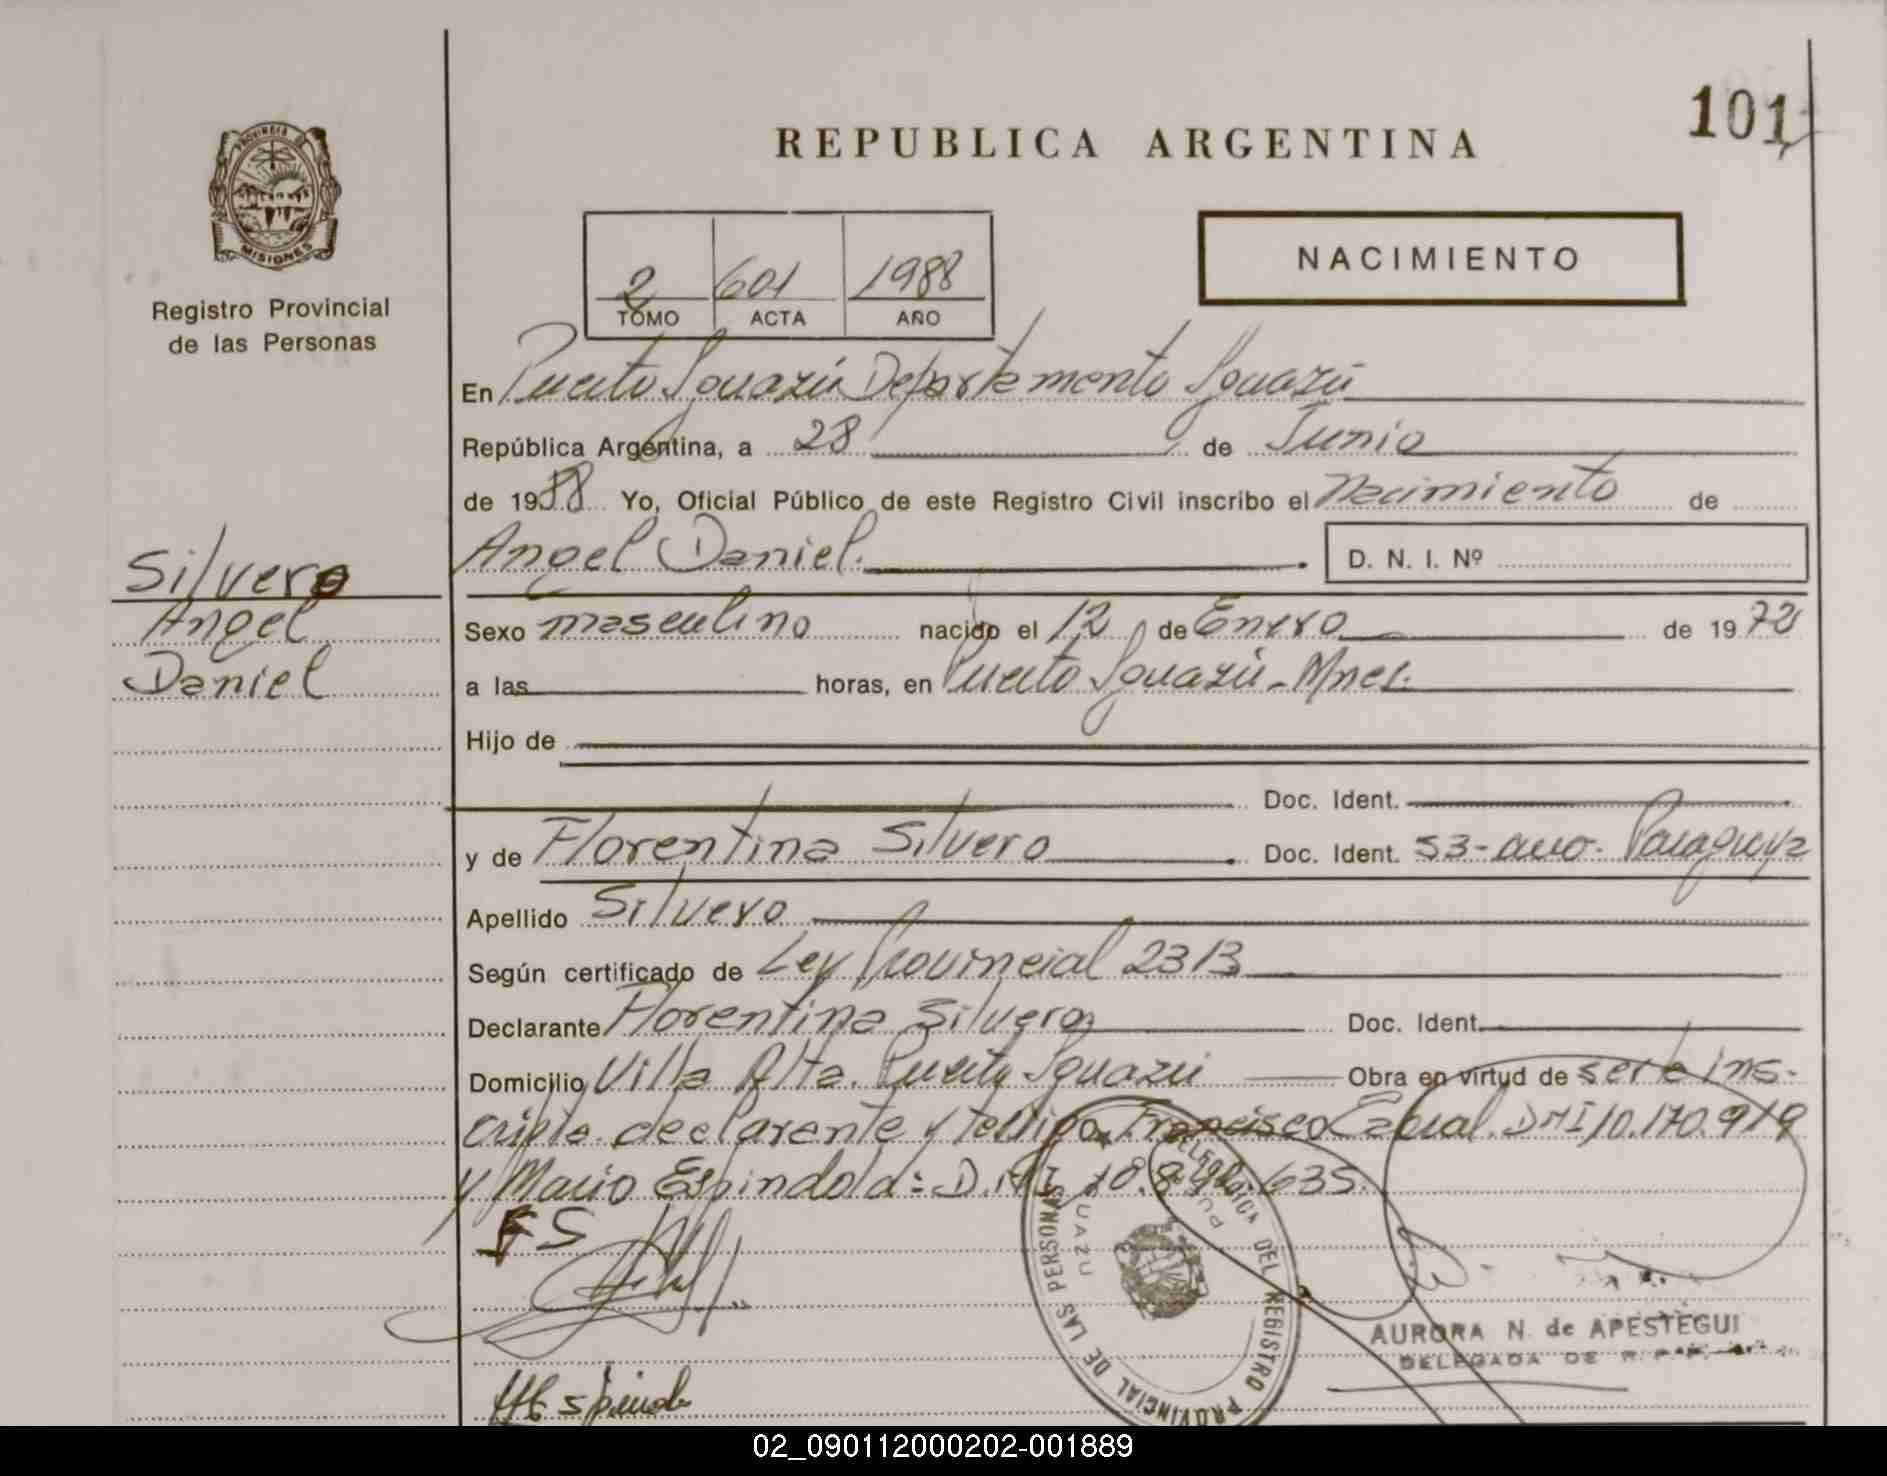 101
REPUBLICA ARGENTINA
PROVINCIA DE
MISIONES
Registro Provincial
de las Personas
NACIMIENTO
2 601 1988
TOMO ACTA AÑO
En Puerto Iguazú Departamento Iguazú
República Argentina, a 28 de Junio
de 1988 Yo, Oficial Público de este Registro Civil inscribo el Nacimiento de
Silvero
Angel
Daniel
Angel Daniel. D. N. I. Nº
Sexo masculino nacido el 12 de Enero de 1972
a las horas, en Puerto Iguazú - Mnes.
Hijo de
Doc. Ident.
y de Florentina Silvero Doc. Ident. 53-años. Paraguya
Apellido Silvero
Según certificado de Ley Provincial 2313
Declarante Florentina Silvero Doc. Ident.
Domicilio Villa Alta. Puerto Iguazú Obra en virtud de serte ins-
cripta declarante y testigos Francisco Cabral. DNI 10.170.919
y Mario Espindola: D.N.I. 635.
FS
DELEGACION DEL REGISTRO PROVINCIAL DE LAS PERSONAS
AURORA N. de APESTEGUI
DELEGADA DE
Espindola
02_090112000202-001889